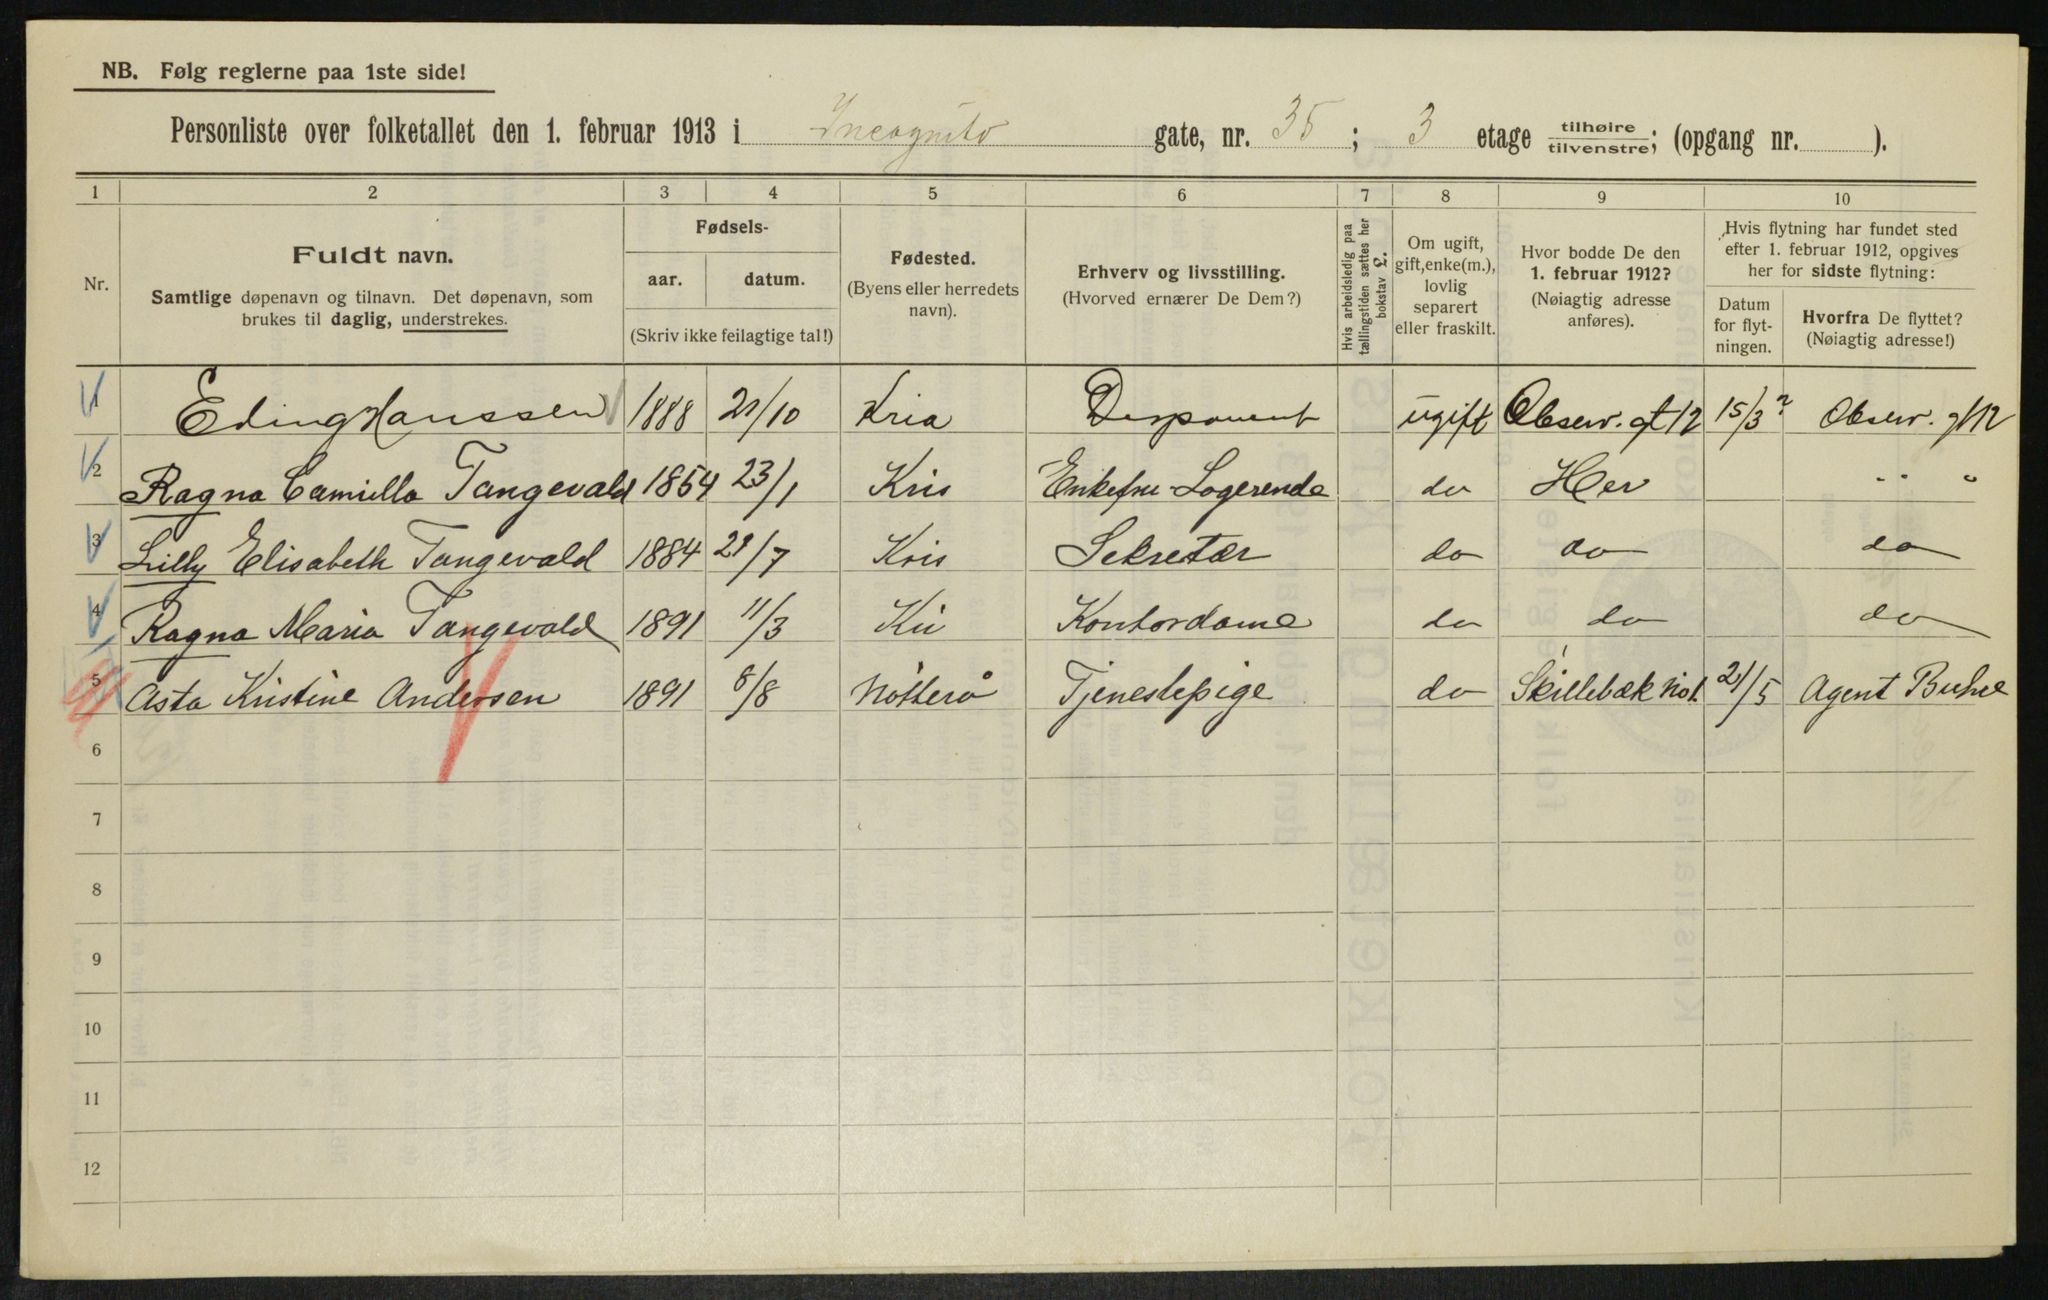 NB. Følg reglerne paa 1ste side!
Personliste over folketallet den 1. februar 1913 i Incognito gate, nr. 35 ; 3 etage tilhøire / tilvenstre; (opgang nr. ).
1 2 3 4 5 6 7 8 9 10
Nr.
Fuldt navn.
Samtlige døpenavn og tilnavn. Det døpenavn, som
brukes til daglig, understrekes.
Fødsels-
aar. datum.
(Skriv ikke feilagtige tal!)
Fødested.
(Byens eller herredets
navn).
Erhverv og livsstilling.
(Hvorved ernærer De Dem?)
Hvis arbeidsledig paa
tællingstiden sættes her
bokstav L.
Om ugift,
gift, enke(m.),
lovlig
separert
eller fraskilt.
Hvor bodde De den
1. februar 1912?
(Nøiagtig adresse
anføres).
Hvis flytning har fundet sted
efter 1. februar 1912, opgives
her for sidste flytning:
Datum
for flyt-
ningen.
Hvorfra De flyttet?
(Nøiagtig adresse!)
1 Eding Hanssen 1888 21/10 Kria Disponent ugift Observ. gt 12 15/3 ? Observ. gt 12
2 Ragna Camilla Tangevald 1854 23/1 Kris Enkefru - Logerende do Her " "
3 Lilly Elisabeth Tangevald 1884 21/7 Kris Sekretær do do do
4 Ragna Maria Tangevald 1891 11/3 Kri Kontordame do do do
5 Asta Kristine Andersen 1891 8/8 Nøtterø Tjenestepige do Skillebæk No 1 21/5 Agent Buhre
6
7
8
9
10
11
12